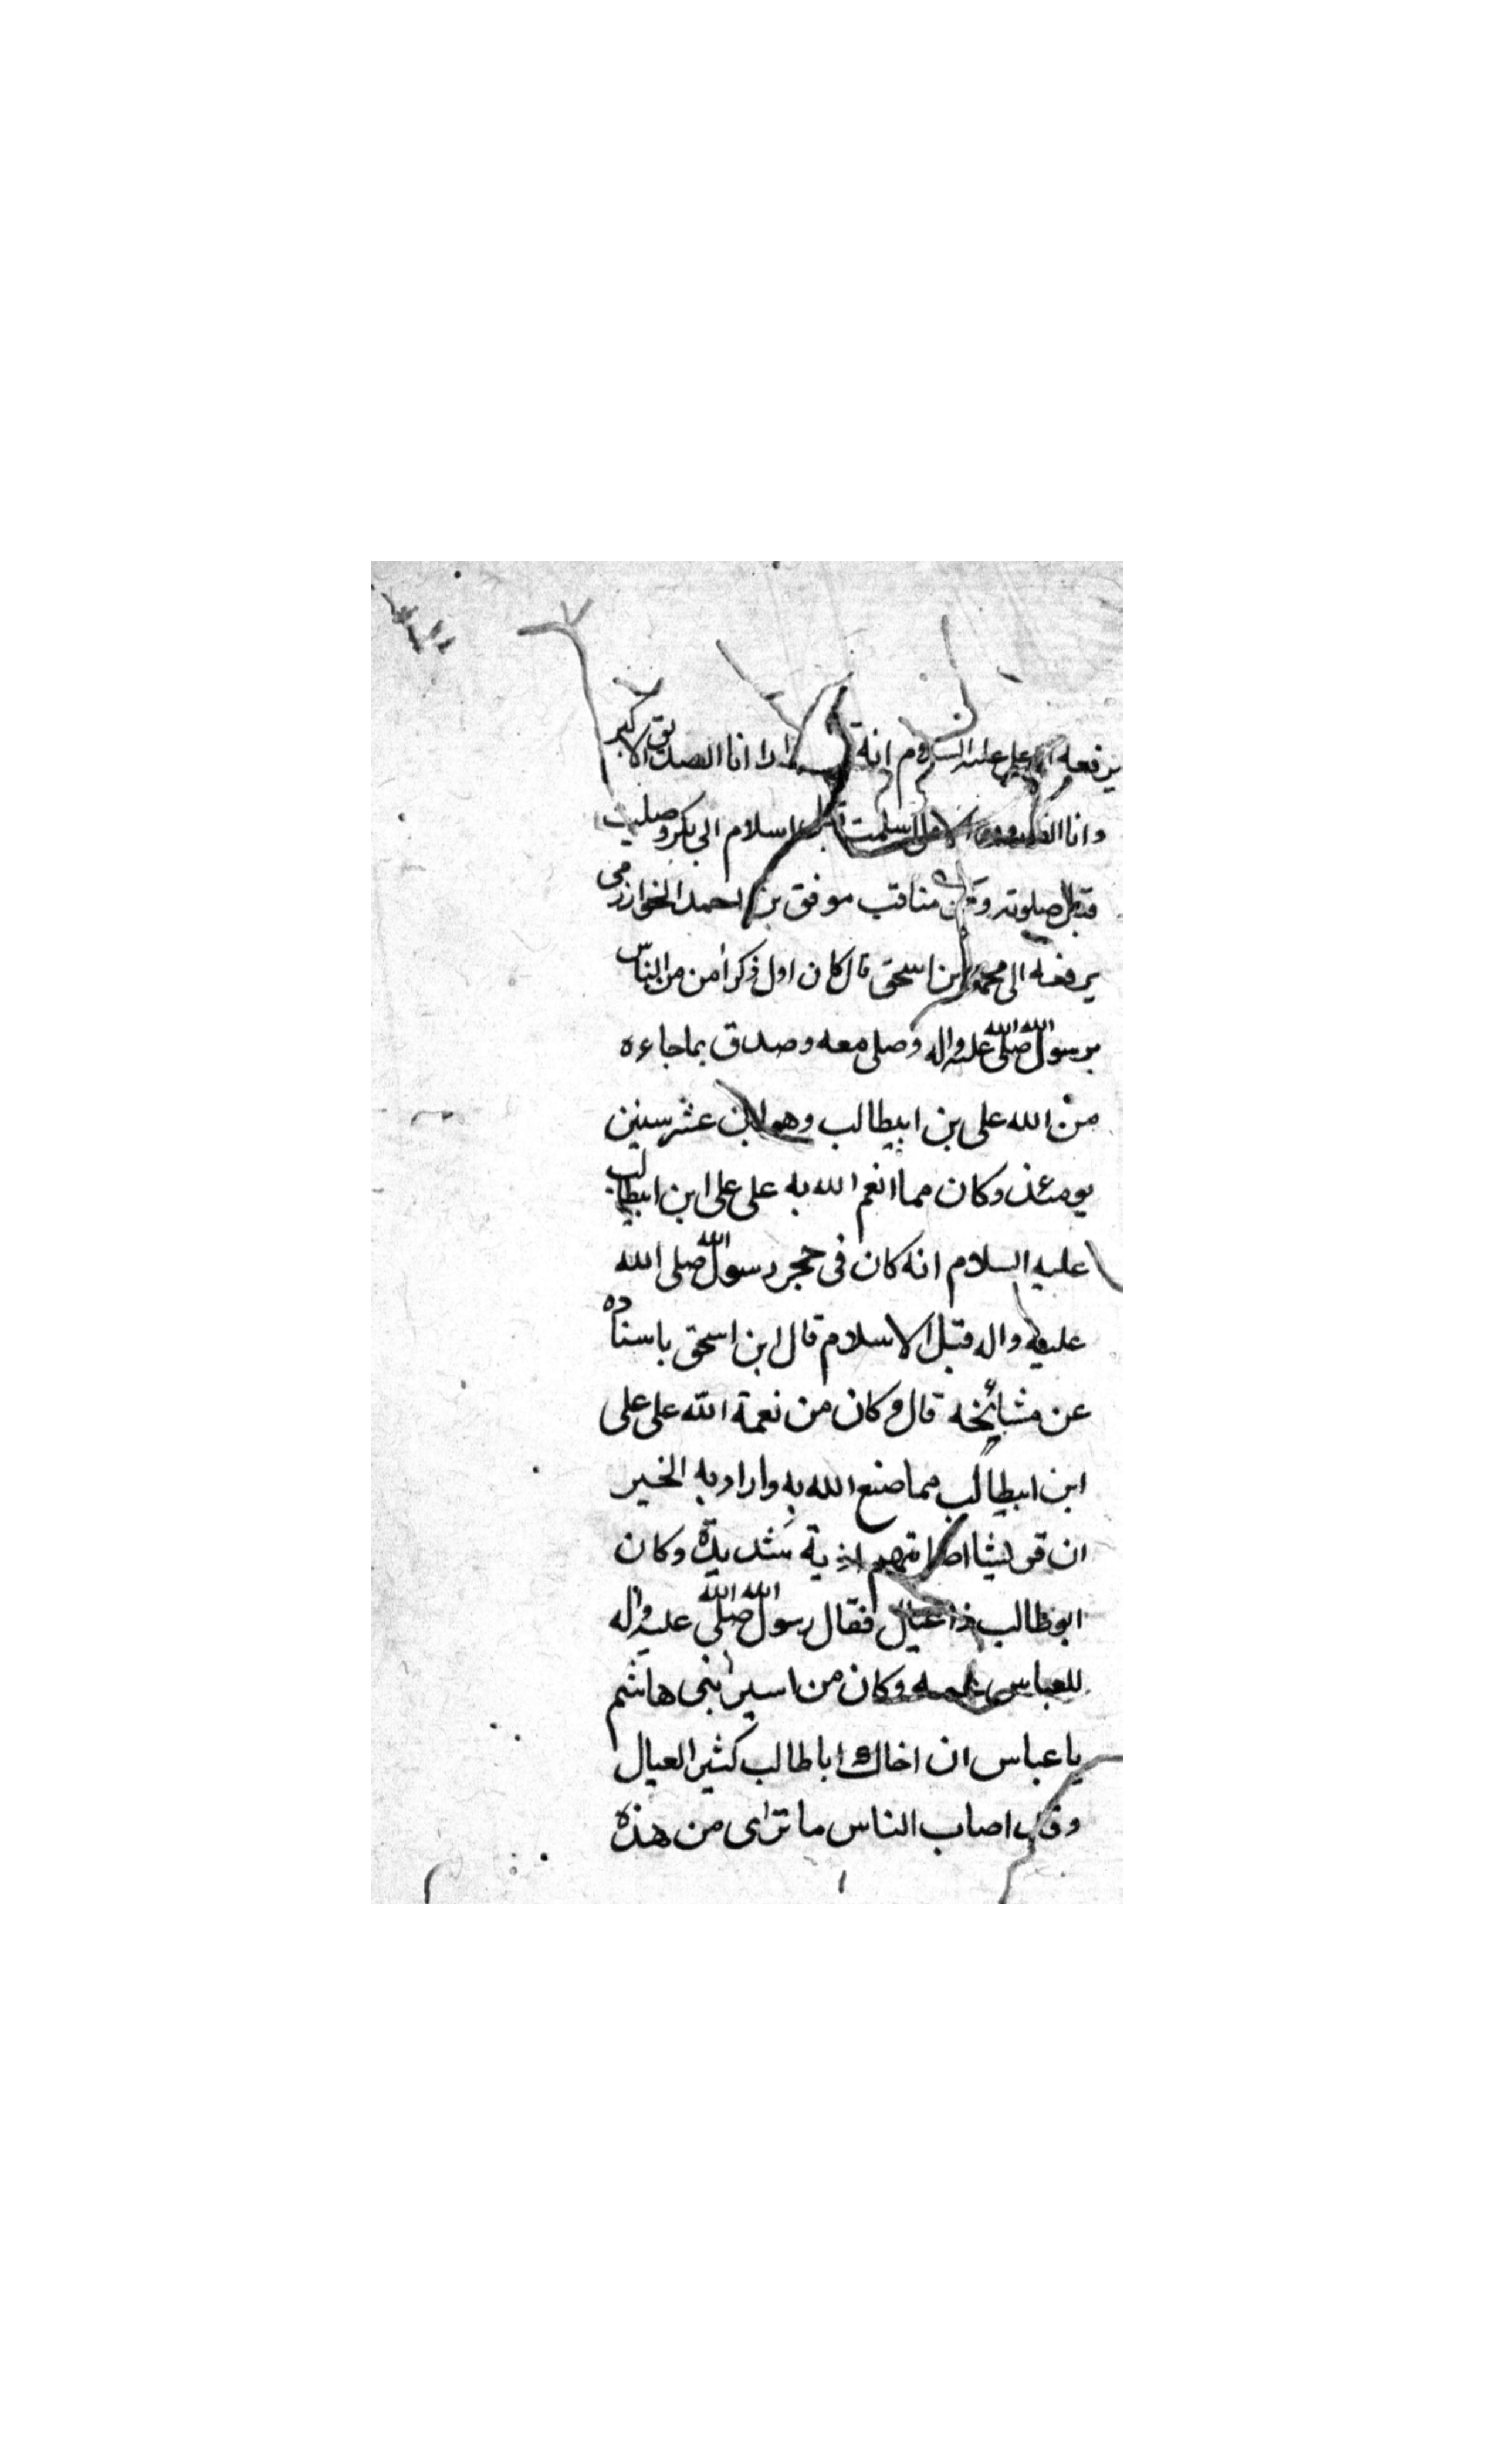 يرفعه الى علي عليه السلام انه انا الصديق الاكبر
وانا الفاروق الاول اسلمت قبل اسلام ابى بكر وصليت
قبل صلوته و مناقب موفق بن احمد الخوارزمى
يرفعه الى محمد بن اسحق قال كان اول ذكر امن من الناس
برسول الله صلى الله عليه واله وصلى معه وصدق بما جاءه
من الله على بن ابيطالب وهو ابن عشر سنين
يومئذ وكان مما انعم الله به على على ابن ابيطالب
عليه السلام انه كان فى حجر رسول الله صلى الله
عليه واله قبل الاسلام قال ابن اسحق باسناده
عن مشائخه قال وكان من نعمة الله على على
ابن ابيطالب مما صنع الله به واراد به الخير
ان قريشا اصابتهم شديدة وكان
ابو طالب ذا عيال فقال رسول الله صلى الله عليه واله
للعباس عمه وكان من ايسر بنى هاشم
يا عباس ان اخاك ابا طالب كثير العيال
وقد اصاب الناس ما ترى من هذه